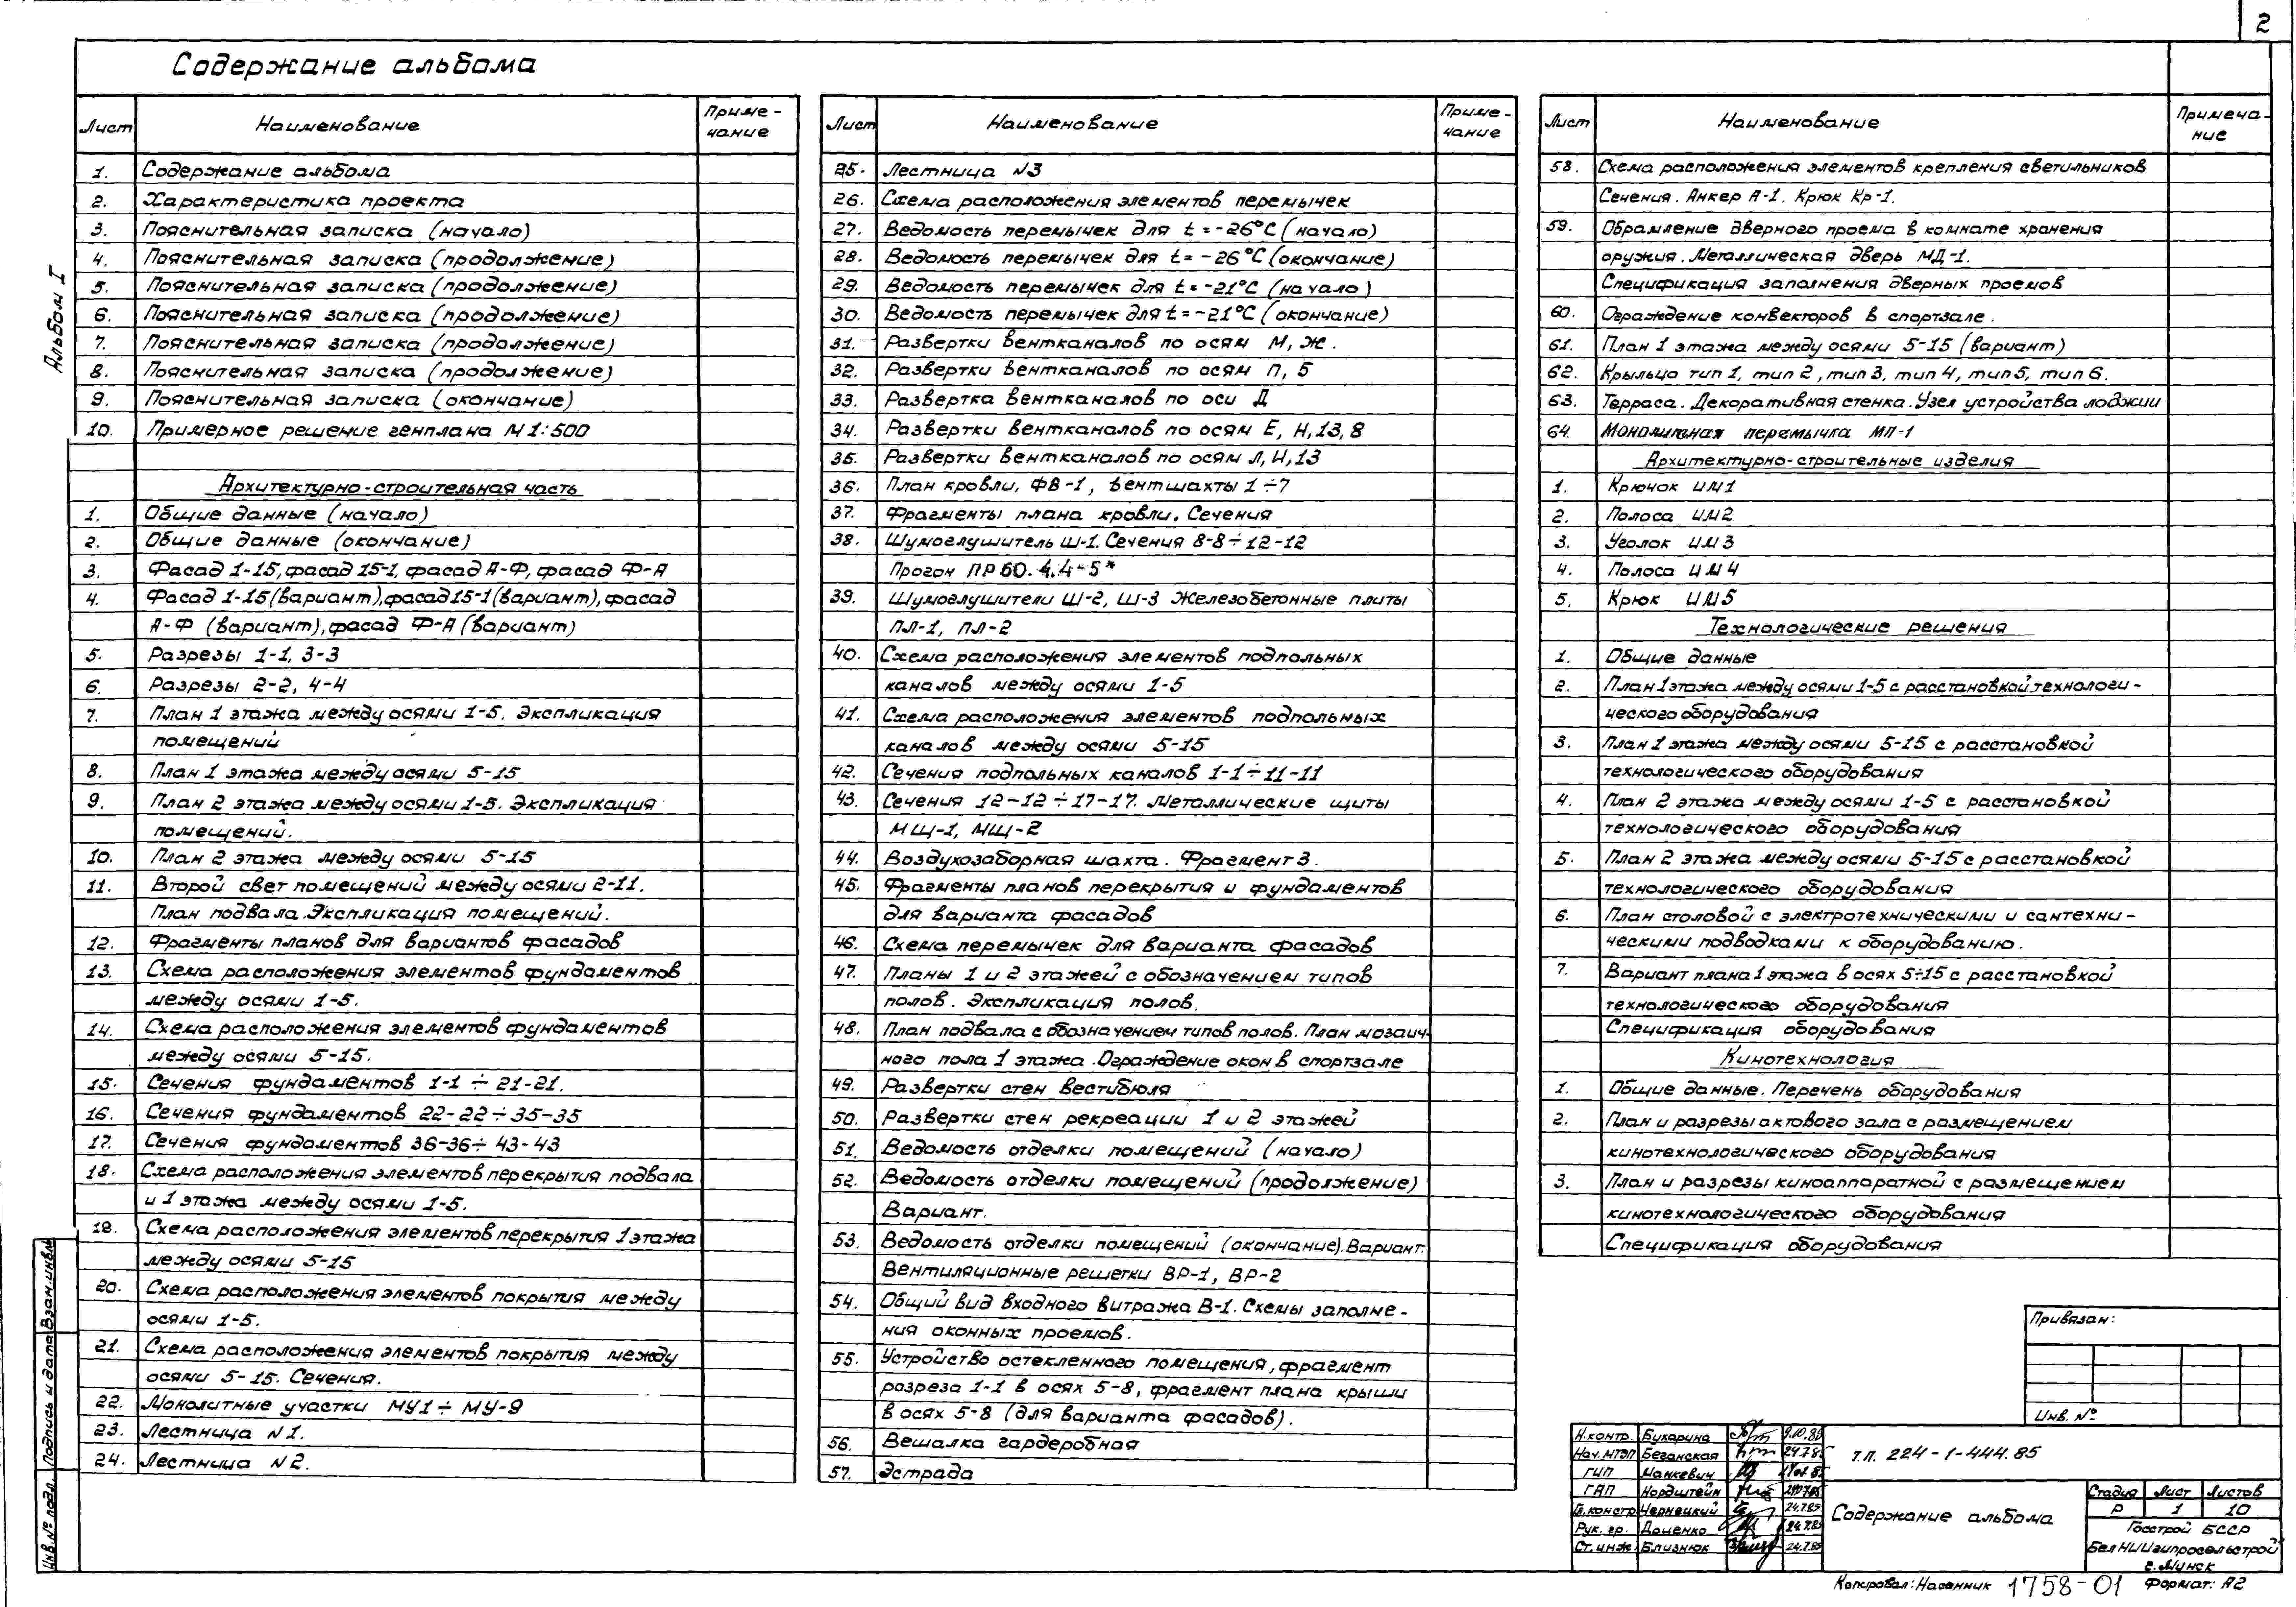 2
Содержание альбома
Альбом I
Лист Наименование Приме-
чание
1. Содержание альбома
2. Характеристика проекта
3. Пояснительная записка (начало)
4. Пояснительная записка (продолжение)
5. Пояснительная записка (продолжение)
6. Пояснительная записка (продолжение)
7. Пояснительная записка (продолжение)
8. Пояснительная записка (продолжение)
9. Пояснительная записка (окончание)
10. Примерное решение генплана М 1:500
Архитектурно-строительная часть
1. Общие данные (начало)
2. Общие данные (окончание)
3. Фасад 1-15, фасад 15-1, фасад А-Ф, фасад Ф-А
4. Фасад 1-15 (вариант), фасад 15-1 (вариант), фасад
А-Ф (вариант), фасад Ф-А (вариант)
5. Разрезы 1-1, 3-3
6. Разрезы 2-2, 4-4
7. План 1 этажа между осями 1-5. Экспликация
помещений
8. План 1 этажа между осями 5-15
9. План 2 этажа между осями 1-5. Экспликация
помещений.
10. План 2 этажа между осями 5-15
11. Второй свет помещений между осями 2-11.
План подвала. Экспликация помещений.
12. Фрагменты планов для вариантов фасадов
13. Схема расположения элементов фундаментов
между осями 1-5.
14. Схема расположения элементов фундаментов
между осями 5-15.
15. Сечения фундаментов 1-1 ÷ 21-21.
16. Сечения фундаментов 22-22 ÷ 35-35
17. Сечения фундаментов 36-36 ÷ 43-43
18. Схема расположения элементов перекрытия подвала
и 1 этажа между осями 1-5.
19. Схема расположения элементов перекрытия 1 этажа
между осями 5-15
20. Схема расположения элементов покрытия между
осями 1-5.
21. Схема расположения элементов покрытия между
осями 5-15. Сечения.
22. Монолитные участки МУ1 ÷ МУ-9
23. Лестница N1.
24. Лестница N2.
Лист Наименование Приме-
чание
25. Лестница N3
26. Схема расположения элементов перемычек
27. Ведомость перемычек для t = -26°С (начало)
28. Ведомость перемычек для t = -26°С (окончание)
29. Ведомость перемычек для t = -21°С (начало)
30. Ведомость перемычек для t = -21°С (окончание)
31. Развертки вентканалов по осям М, Ж.
32. Развертки вентканалов по осям П, 5
33. Развертка вентканалов по оси Д
34. Развертки вентканалов по осям Е, Н, 13, 8
35. Развертки вентканалов по осям Л, И, 13
36. План кровли, ФВ-1, вентшахты 1 ÷ 7
37. Фрагменты плана кровли. Сечения
38. Шумоглушитель Ш-1. Сечения 8-8 ÷ 12-12
Прогон ПР 60. 4.4-5*
39. Шумоглушители Ш-2, Ш-3 Железобетонные плиты
ПЛ-1, ПЛ-2
40. Схема расположения элементов подпольных
каналов между осями 1-5
41. Схема расположения элементов подпольных
каналов между осями 5-15
42. Сечения подпольных каналов 1-1 ÷ 11-11
43. Сечения 12-12 ÷ 17-17. Металлические щиты
МЩ-1, МЩ-2
44. Воздухозаборная шахта. Фрагмент 3.
45. Фрагменты планов перекрытия и фундаментов
для варианта фасадов
46. Схема перемычек для варианта фасадов
47. Планы 1 и 2 этажей с обозначением типов
полов. Экспликация полов.
48. План подвала с обозначением типов полов. План мозаич-
ного пола 1 этажа. Ограждение окон в спортзале
49. Развертки стен вестибюля
50. Развертки стен рекреации 1 и 2 этажей
51. Ведомость отделки помещений (начало)
52. Ведомость отделки помещений (продолжение)
Вариант.
53. Ведомость отделки помещений (окончание). Вариант.
Вентиляционные решетки ВР-1, ВР-2
54. Общий вид входного витража В-1. Схемы заполне-
ния оконных проемов.
55. Устройство остекленного помещения, фрагмент
разреза 1-1 в осях 5-8, фрагмент плана крыши
в осях 5-8 (для варианта фасадов).
56. Вешалка гардеробная
57. Эстрада
Лист Наименование Примеча-
ние
58. Схема расположения элементов крепления светильников
Сечения. Анкер А-1. Крюк Кр-1.
59. Обрамление дверного проема в комнате хранения
оружия. Металлическая дверь МД-1.
Спецификация заполнения дверных проемов
60. Ограждение конвекторов в спортзале.
61. План 1 этажа между осями 5-15 (вариант)
62. Крыльцо тип 1, тип 2, тип 3, тип 4, тип 5, тип 6.
63. Терраса. Декоративная стенка. Узел устройства лоджии
64. Монолитная перемычка МП-1
Архитектурно-строительные изделия
1. Крючок ИМ1
2. Полоса ИМ2
3. Уголок ИМ3
4. Полоса ИМ4
5. Крюк ИМ5
Технологические решения
1. Общие данные
2. План 1 этажа между осями 1-5 с расстановкой технологи-
ческого оборудования
3. План 1 этажа между осями 5-15 с расстановкой
технологического оборудования
4. План 2 этажа между осями 1-5 с расстановкой
технологического оборудования
5. План 2 этажа между осями 5-15 с расстановкой
технологического оборудования
6. План столовой с электротехническими и сантехни-
ческими подводками к оборудованию.
7. Вариант плана 1 этажа в осях 5÷15 с расстановкой
технологического оборудования
Спецификация оборудования
Кинотехнология
1. Общие данные. Перечень оборудования
2. План и разрезы актового зала с размещением
кинотехнологического оборудования
3. План и разрезы киноаппаратной с размещением
кинотехнологического оборудования
Спецификация оборудования
Привязан:
Инв. №
Н.контр. Бухарина
Нач. МТЭП Беганская
ГИП Манкевич
ГАП Нордштейн
Гл. констр. Чернецкий 24.7.85
Рук. гр. Доценко 24.7.85
Ст. инж. Близнюк 24.7.85
т.п. 224-1-444.85
Содержание альбома
Стадия Лист Листов
Р 1 10
Госстрой БССР
БелНИИгипросельстрой
г. Минск
Инв. № подл. Подпись и дата Взам. инв. №
Копировал: Насенник 1758-01 Формат: А2